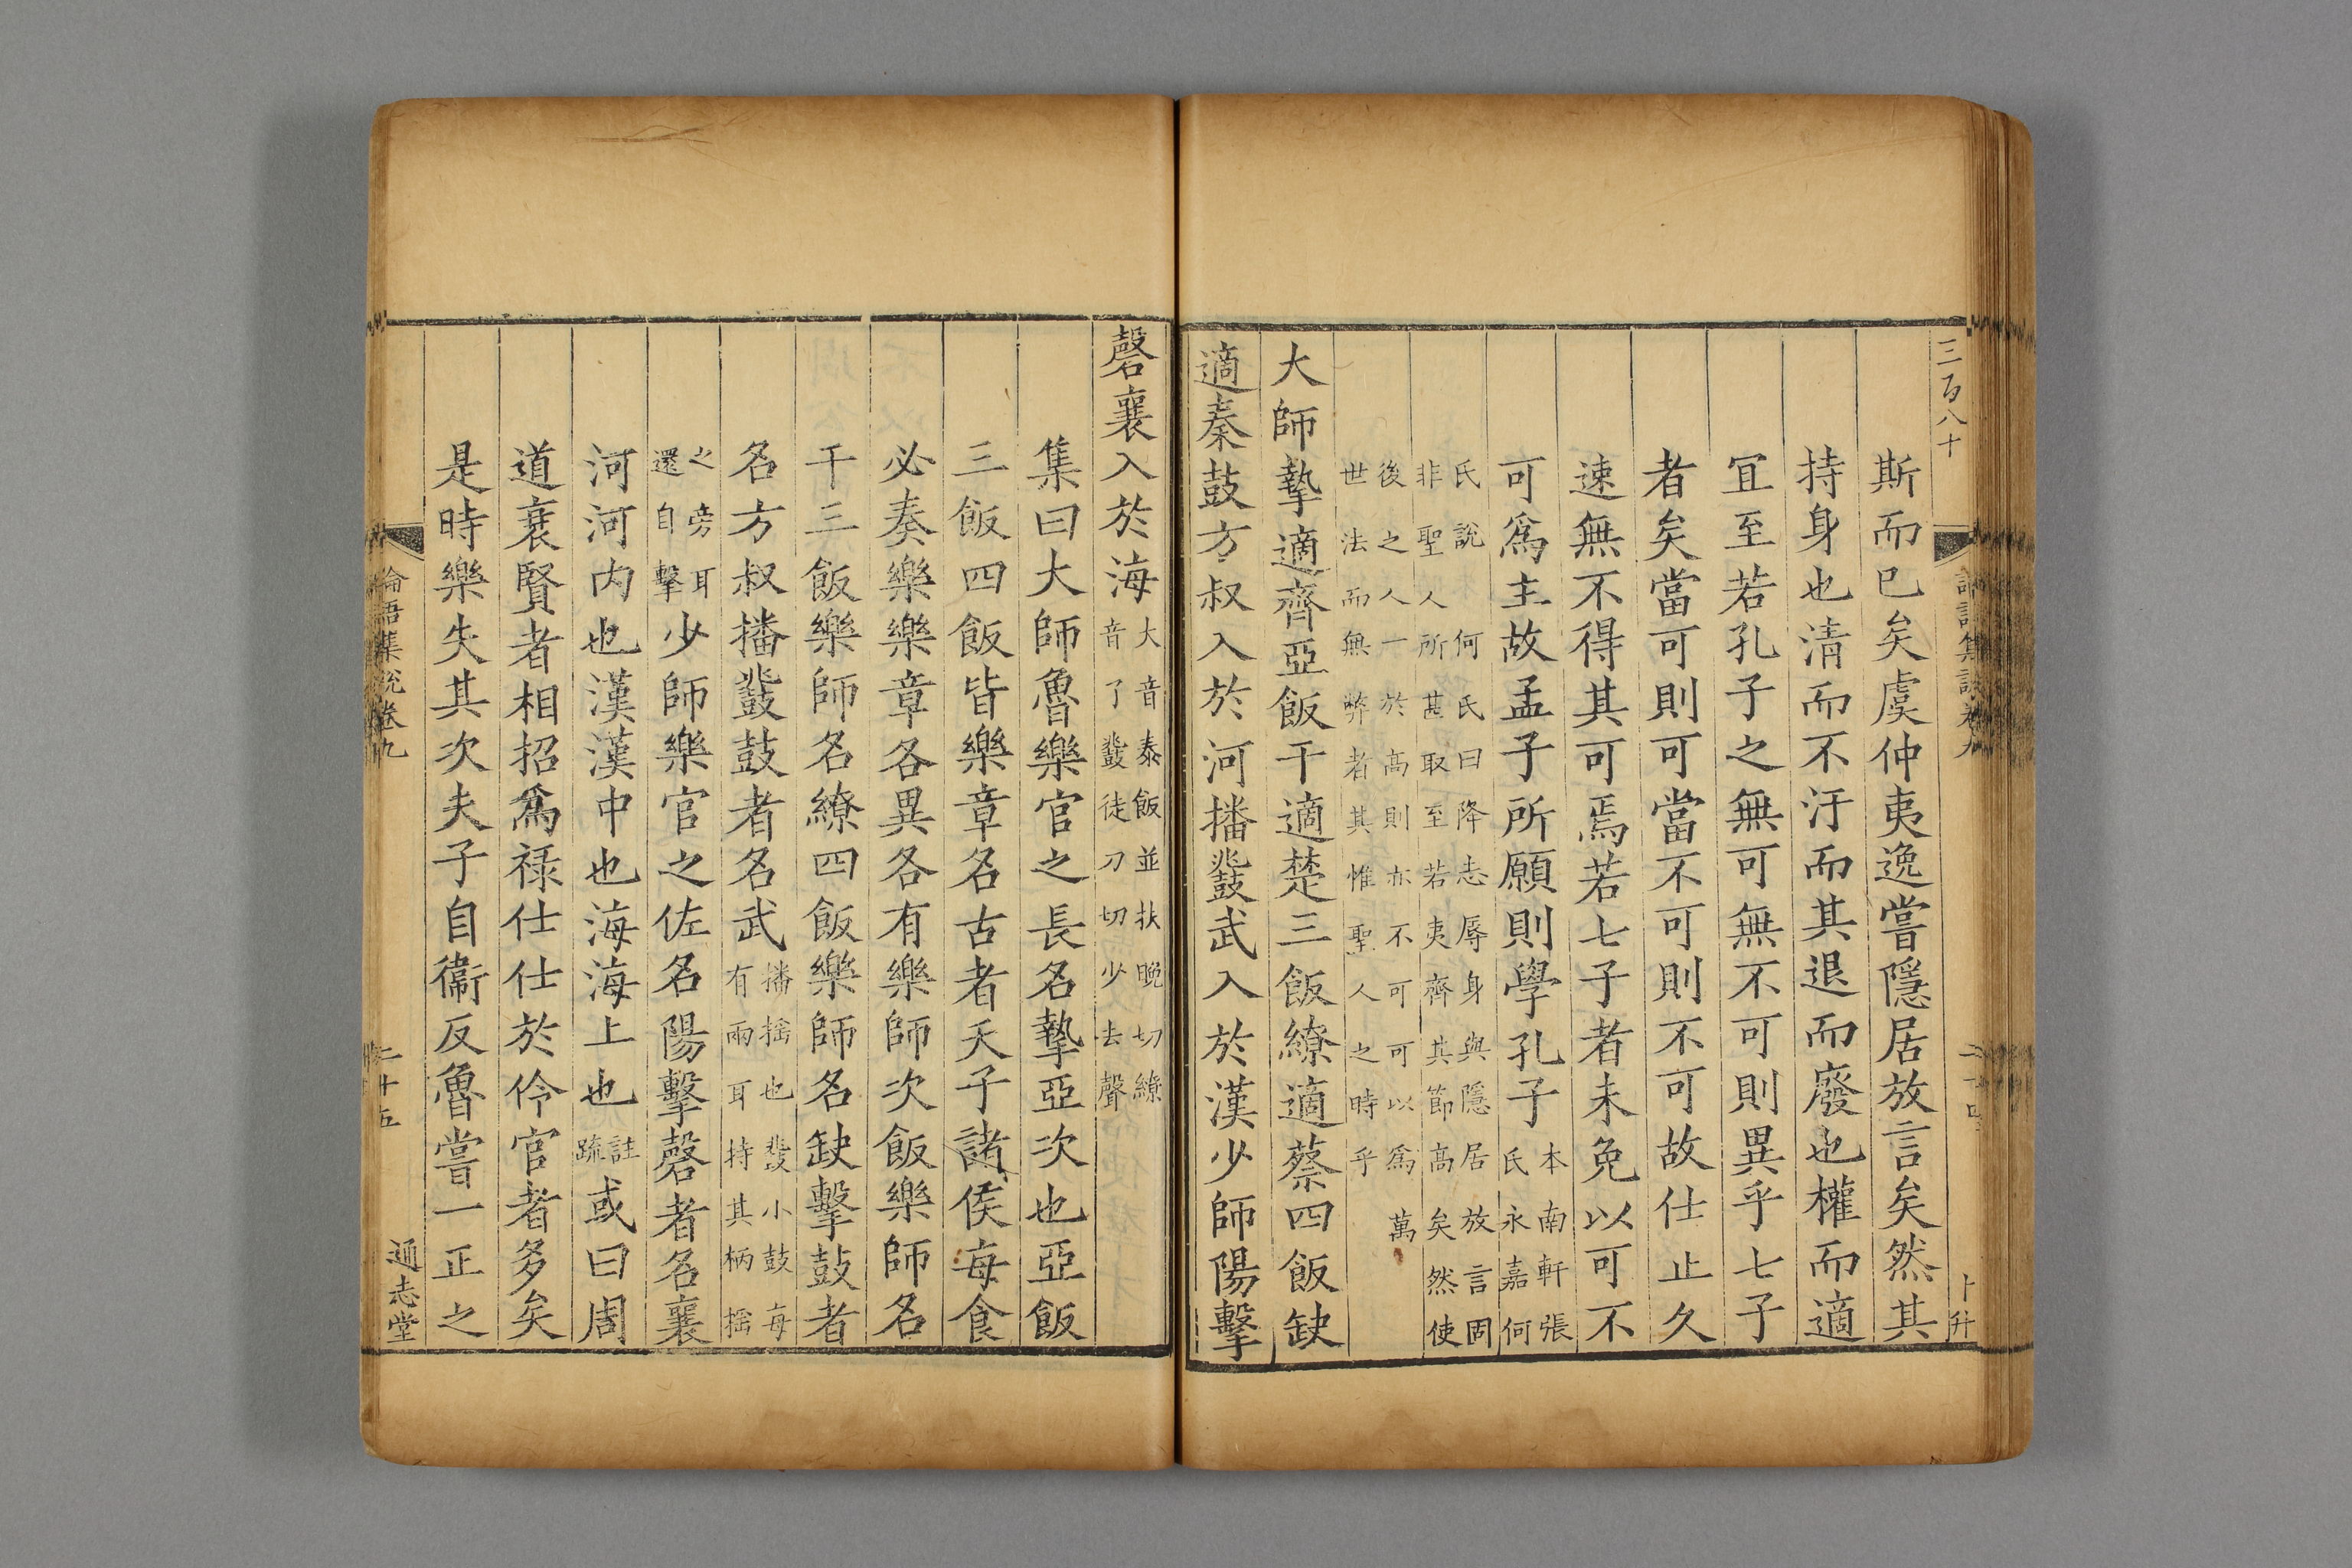 三百八十
論語集說卷九
二十四
卜升
斯而巳矣虞仲夷逸嘗隱居放言矣然其
持身也清而不汙而其退而廢也權而適
冝至若孔子之無可無不可則異乎七子
者矣當可則可當不可則不可故仕止久
速無不得其可焉若七子者未免以可不
可爲主故孟子所願則學孔子本南軒張氏永嘉何
氏說何氏曰降志辱身與隱居放言固非聖人所甚取至若夷齊其節高矣然使
後之人一於高則亦不可可以爲萬世法而無弊者其惟聖人之時乎
大師摯適齊亞飯干適楚三飯繚適蔡四飯缺
適秦鼓方叔入於河播鼗武入於漢少師陽擊
磬襄入於海大音泰飯並扶晚切繚音了鼗徒刀切少去聲
集曰大師魯樂官之長名摯亞次也亞飯
三飯四飯皆樂章名古者天子諸侯每食
必奏樂樂章各異各有樂師次飯樂師名
干三飯樂師名繚四飯樂師名缺擊鼓者
名方叔播鼗鼓者名武播搖也鼗小鼓每有兩耳持其柄搖
之旁耳還自擊少師樂官之佐名陽擊磬者名襄
河河内也漢漢中也海海上也註疏或曰周
道衰賢者相招爲祿仕仕於伶官者多矣
是時樂失其次夫子自衞反魯嘗一正之
論語集說卷九
二十五
通志堂